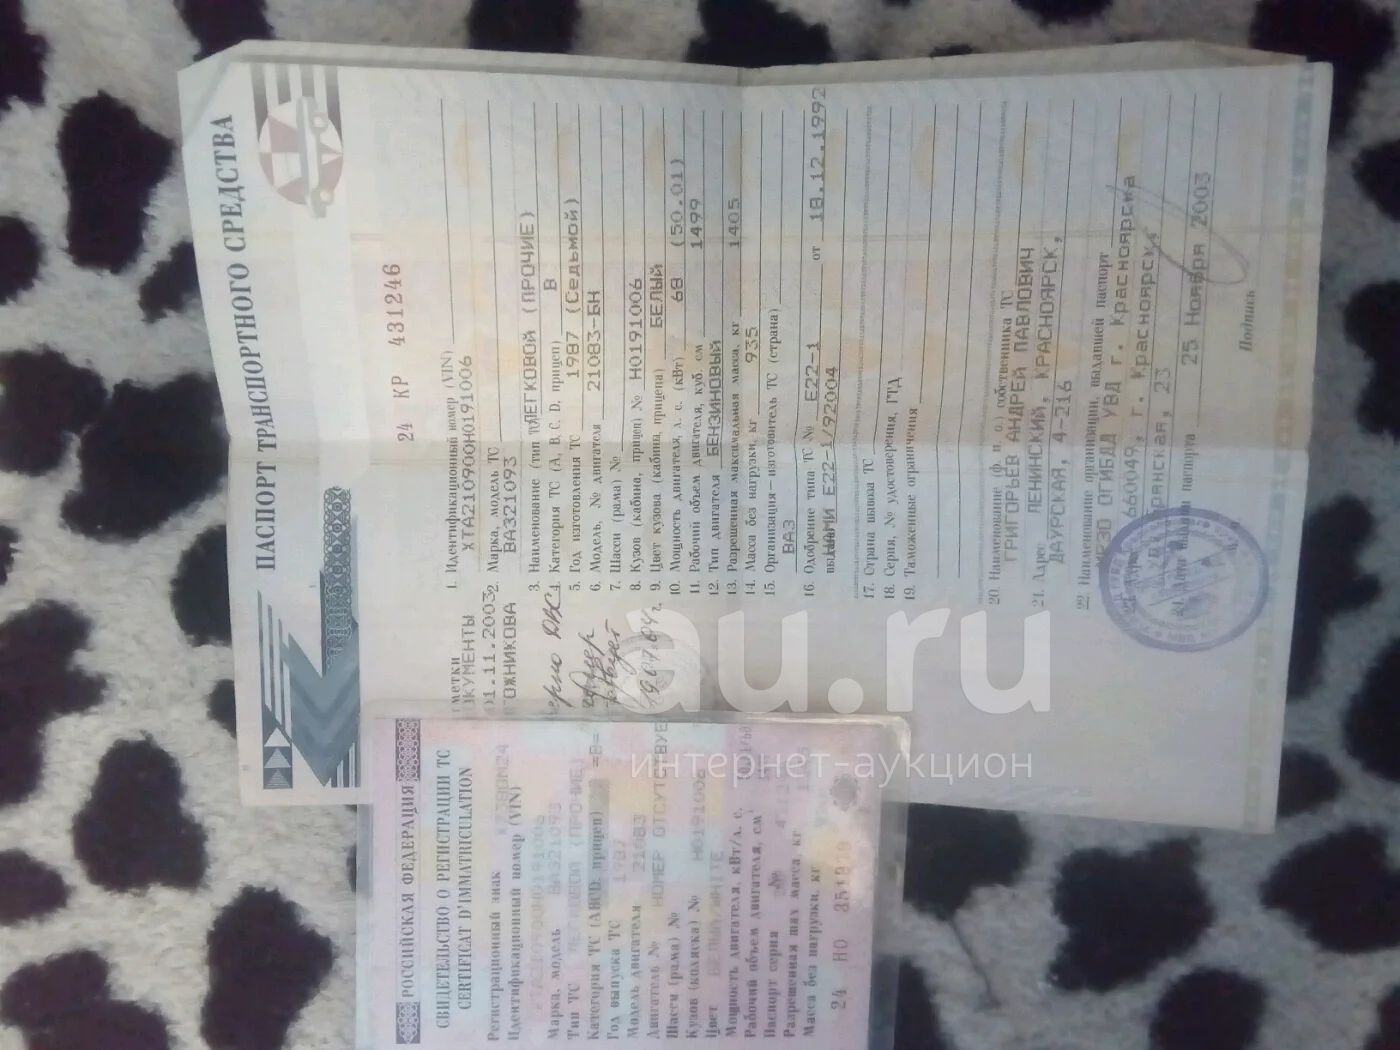 ПАСПОРТ ТРАНСПОРТНОГО СРЕДСТВА
24 КР 431246
1. Идентификационный номер (VIN)
ХТА210900Н0191006
2. Марка, модель ТС
ВАЗ21093
3. Наименование (тип ТС) ЛЕГКОВОЙ (ПРОЧИЕ)
4. Категория ТС (A, B, C, D, прицеп) В
5. Год изготовления ТС 1987 (Седьмой)
6. Модель, № двигателя 21083-БН
7. Шасси (рама) №
8. Кузов (кабина, прицеп) № Н0191006
9. Цвет кузова (кабины, прицепа) БЕЛЫЙ
10. Мощность двигателя, л. с. (кВт) 68 (50.01)
11. Рабочий объем двигателя, куб. см 1499
12. Тип двигателя БЕНЗИНОВЫЙ
13. Разрешенная максимальная масса, кг 1405
14. Масса без нагрузки, кг 935
15. Организация–изготовитель ТС (страна)
ВАЗ
16. Одобрение типа ТС № Е22-1 от 18.12.1992
НАМИ Е22-1/92004
17. Страна вывоза ТС
18. Серия, № удостоверения, ГТД
19. Таможенные ограничения
20. Наименование (ф. и. о.) собственника ТС
ГРИГОРЬЕВ АНДРЕЙ ПАВЛОВИЧ
21. Адрес ЛЕНИНСКИЙ, КРАСНОЯРСК,
ДАУРСКАЯ, 4-216
22. Наименование организации, выдавшей паспорт
МРЭО ОГИБДД УВД г. Красноярска
660049, г. Красноярск,
23
24. Дата выдачи паспорта 25 Ноября 2003
Подпись
метки
КУМЕНТЫ
01.11.2003
ОЖНИКОВА
ДВС
19.07.04г.
au.ru
интернет-аукцион
РОССИЙСКАЯ ФЕДЕРАЦИЯ
СВИДЕТЕЛЬСТВО О РЕГИСТРАЦИИ ТС
CERTIFICAT D'IMMATRICULATION
Регистрационный знак
Идентификационный номер (VIN)
Марка, модель ВАЗ21093
Тип ТС ЛЕГКОВОЙ (ПРОЧИЕ)
Категория ТС (ABCD, прицеп) =В=
Год выпуска ТС 1987
Модель двигателя 21083
Двигатель № НОМЕР ОТСУТСТВУЕ
Шасси (рама) №
Кузов (коляска) № Н0191006
Цвет БЕЛЫЙ/WHITE
Мощность двигателя, кВт/л. с.
Рабочий объем двигателя, см³
Паспорт серия №
Разрешенная max масса, кг
Масса без нагрузки, кг
24 НО